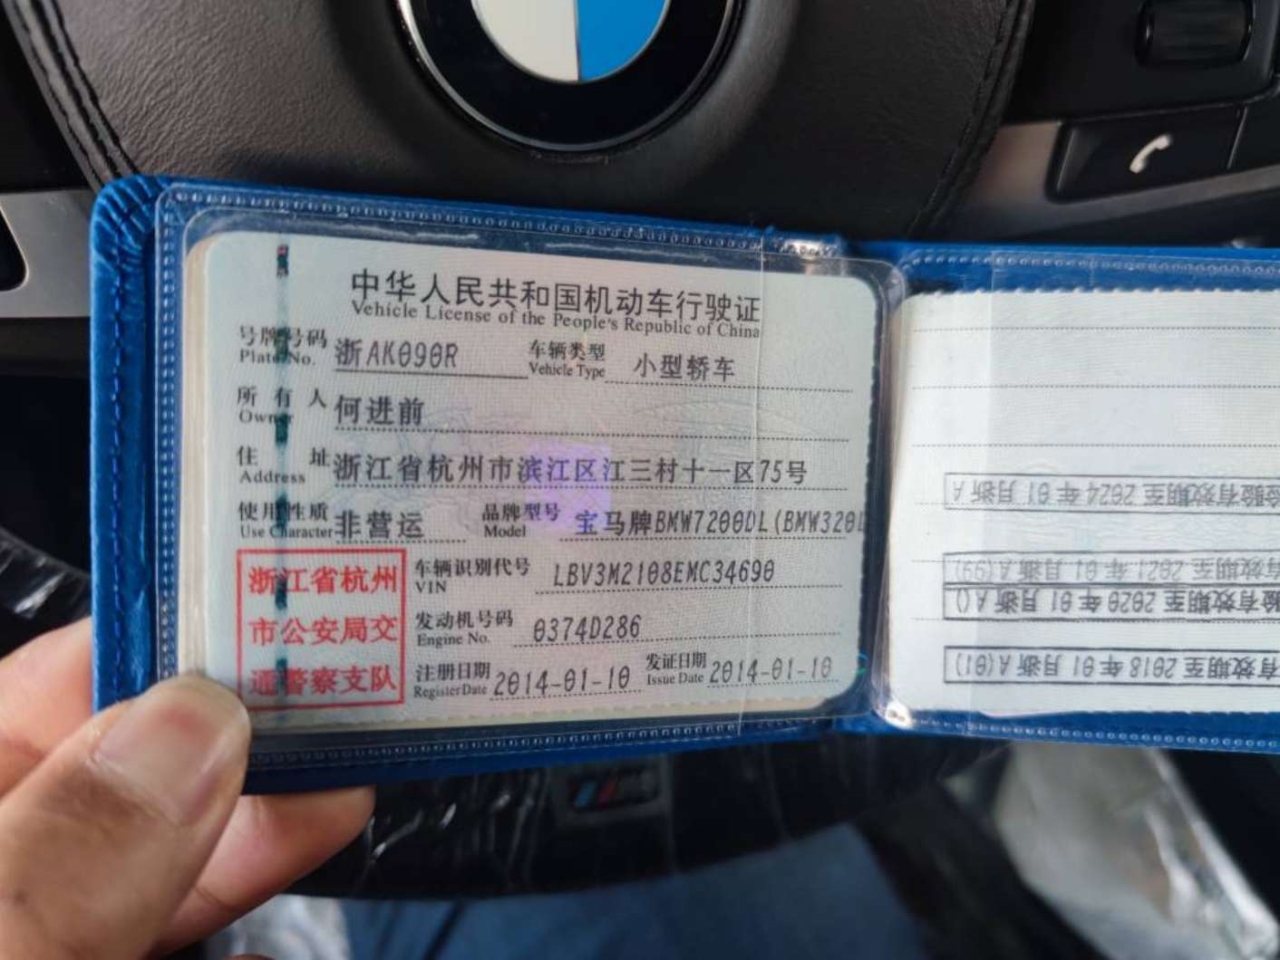 中华人民共和国机动车行驶证
Vehicle License of the People's Republic of China
号牌号码 浙AK090R 车辆类型 小型轿车
Plate No. Vehicle Type
所有人 何进前
Owner
住址 浙江省杭州市滨江区江三村十一区75号
Address
使用性质 非营运 品牌型号 宝马牌BMW7200DL(BMW320
Use Character Model
浙江省杭州
市公安局交
通警察支队
车辆识别代号 LBV3M2108EMC34690
VIN
发动机号码 0374D286
Engine No.
注册日期 2014-01-10 发证日期 2014-01-10
Register Date Issue Date
有效期至2018年01月浙A(01)
验有效期至2020年01月浙A()
有效期至2021年01月浙A(99)
检验有效期至2024年01月浙A